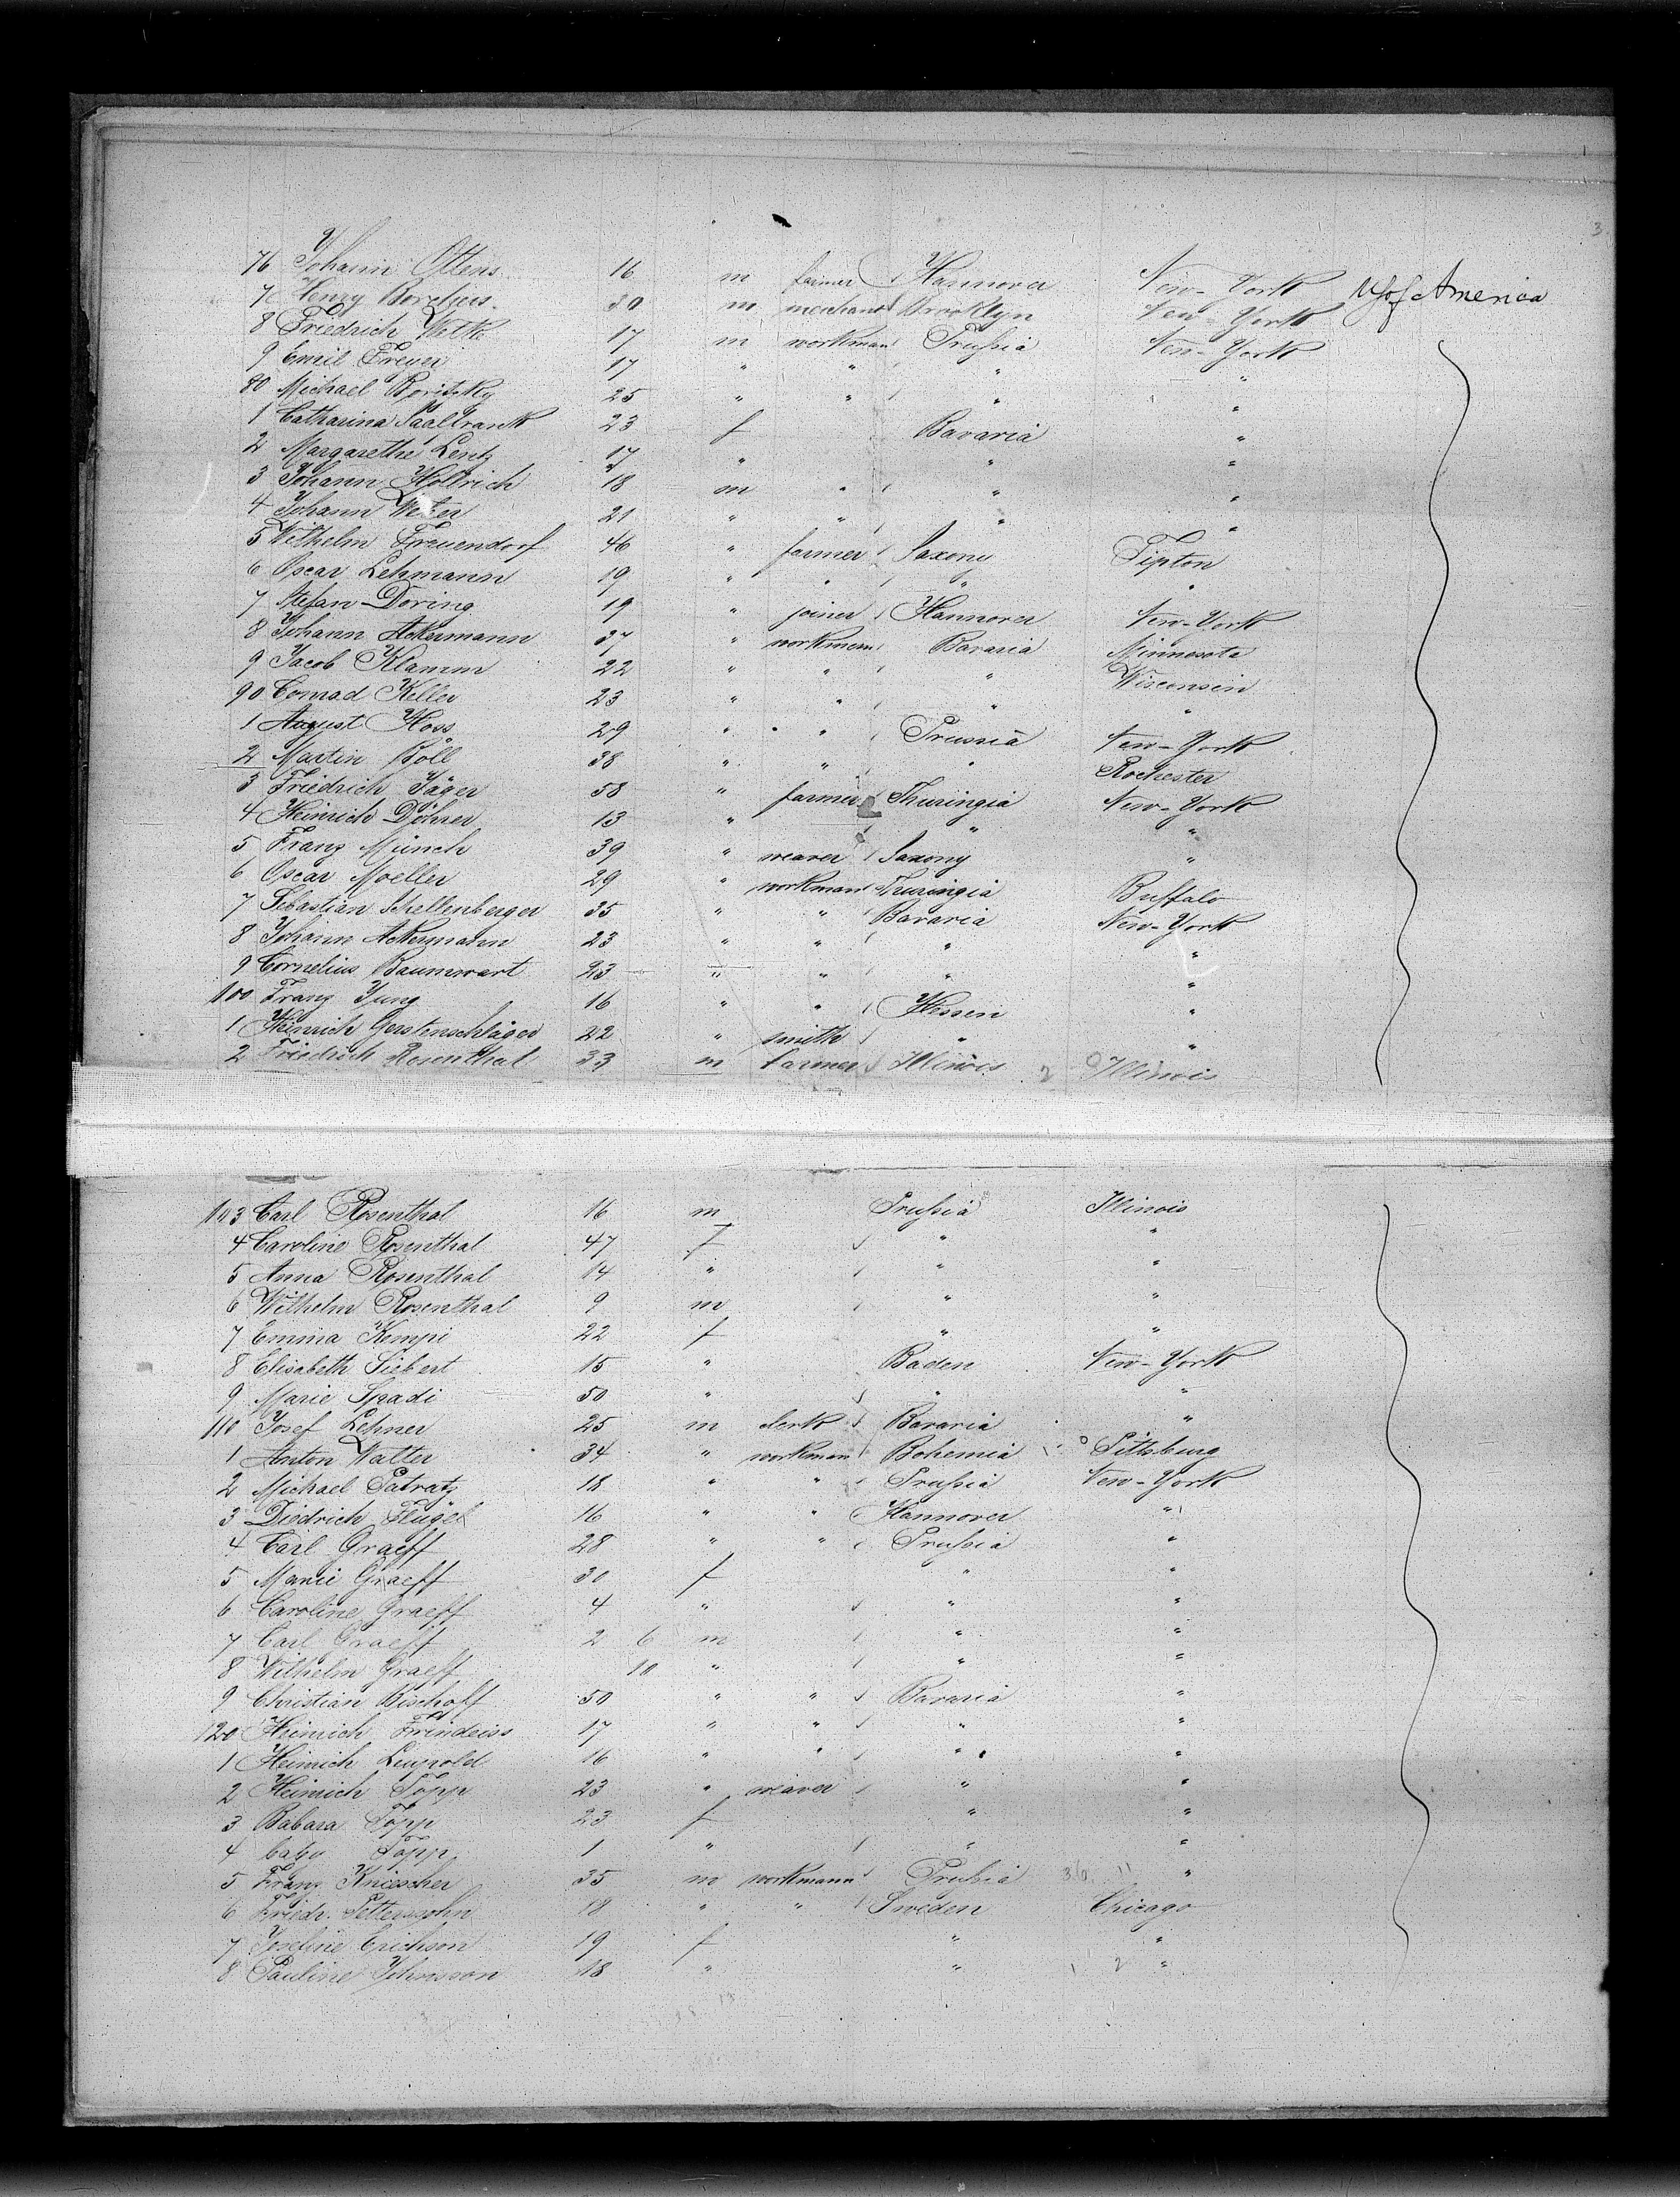 3
76 Johann Ottens 16 m farmer Hannover New-York U S of America
7 Henry 30 m merchant Brooklyn New-York
8 Friedrich 17 m workman Prussia New-York
9 Emil Freyer 17 " " " "
80 Michael Boritzky 25 " " " "
1 Catharina Saalfrank 23 f Bavaria "
2 Margarethe Lentz 17 " " "
3 Johann Hollrich 18 m " " "
4 Johann 21 " " " "
5 Wilhelm Freuendorf 46 " farmer Saxony Tipton
6 Oscar Lehmann 19 " " " "
7 Stefan Döring 19 " joiner Hannover New-York
8 Johann Ackermann 27 " workmen Bavaria Minnesota
9 Jacob Klamm 22 " " " Wisconsin
90 Conrad Keller 23 " " " "
1 August Hoss 29 " " Prussia New-York
2 Martin Böll 38 " " " Rochester
3 Friedrich Jäger 58 " farmer Thuringia New-York
4 Heinrich Döhrer 13 " " "
5 Franz Münch 39 " weaver Saxony "
6 Oscar Moeller 29 " workman Thuringia Buffalo
7 Sebastian Schellenberger 35 " " Bavaria New-York
8 Johann Ackermann 23 " " " "
9 Cornelius Baumwart 23 " " " "
100 Franz Jung 16 " " Hessen "
1 Heinrich Gerstenschläger 22 " smith " "
2 Friedrich Rosenthal 33 m farmer Illinois Illinois
103 Carl Rosenthal 16 m Prussia Illinois
4 Caroline Rosenthal 47 f " "
5 Anna Rosenthal 14 " " "
6 Wilhelm Rosenthal 9 m " "
7 Emma Kempi 22 f " "
8 Elisabeth Siebert 15 " Baden New-York
9 Marie Spadi 50 " " "
110 Josef Lehner 25 m clerk Bavaria "
1 Anton Walter 34 " workman Bohemia Pittsburg
2 Michael Patratz 18 " " Prussia New-York
3 Diedrich Flügel 16 " " Hannover "
4 Carl Graeff 28 " " Prussia "
5 Marie Graeff 30 f " "
6 Caroline Graeff 4 " " "
7 Carl Graeff 2 6 m " "
8 Wilhelm Graeff 10 " " "
9 Christian Bischoff 50 " " Bavaria "
120 Heinrich Frindeiss 17 " " " "
1 Heinrich Leupold 16 " " " "
2 Heinrich Töpp 23 " weaver " "
3 Babara Töpp 23 f " "
4 baby Töpp 1 " " "
5 Franz Kniescher 35 m workmann Prussia "
6 Friedr. Petterssohn 18 " " Sweden Chicago
7 Josefine Erichson 19 f " "
8 Pauline Johnsson 18 " " "